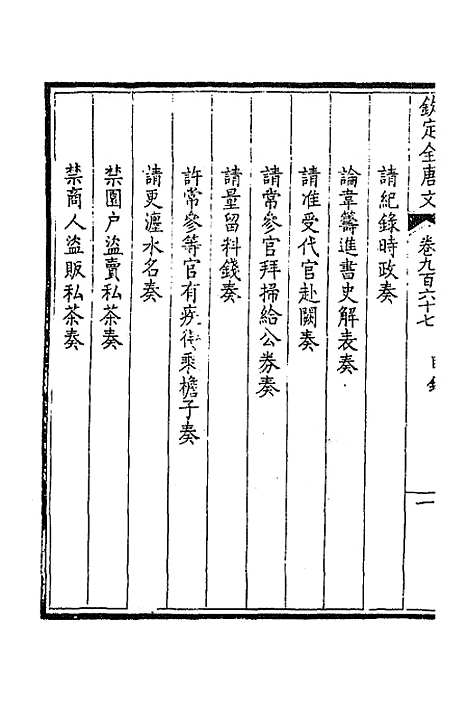 欽定全唐文 卷九百六十七 目錄 一
請紀錄時政奏
論韋籌進書史解表奏
請准受代官赴闕奏
請常參官拜掃給公券奏
請量留料錢奏
許常參等官有疾得乘檐子奏
請更瀍水名奏
禁園户盜賣私茶奏
禁商人盜販私茶奏